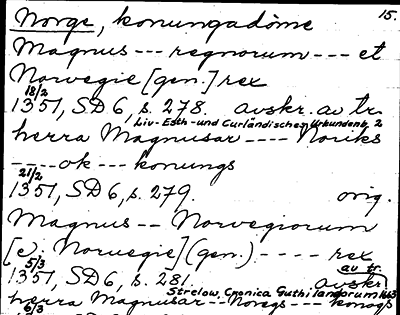 15.
Norge, konungadöme
Magnus --- regnorum --- et
Norvegie [gen.] rex
18/2
1351, SD 6, s. 278. avskr. av tr.
Liv- Esth- und Curländisches Urkundenb. 2
herra Magnusar ---- Noriks
---- ok --- konungs
21/2
1351, SD 6, s. 279. orig.
Magnus -- Norwegiorum
[ej. Noruegie] (gen.) ---- rex
5/3 av tr.
1351, SD 6, s. 281. avskr.
Strelow, Cronica Guthilandorum
herra Magnusar -- Noregs --- konogs
6/3